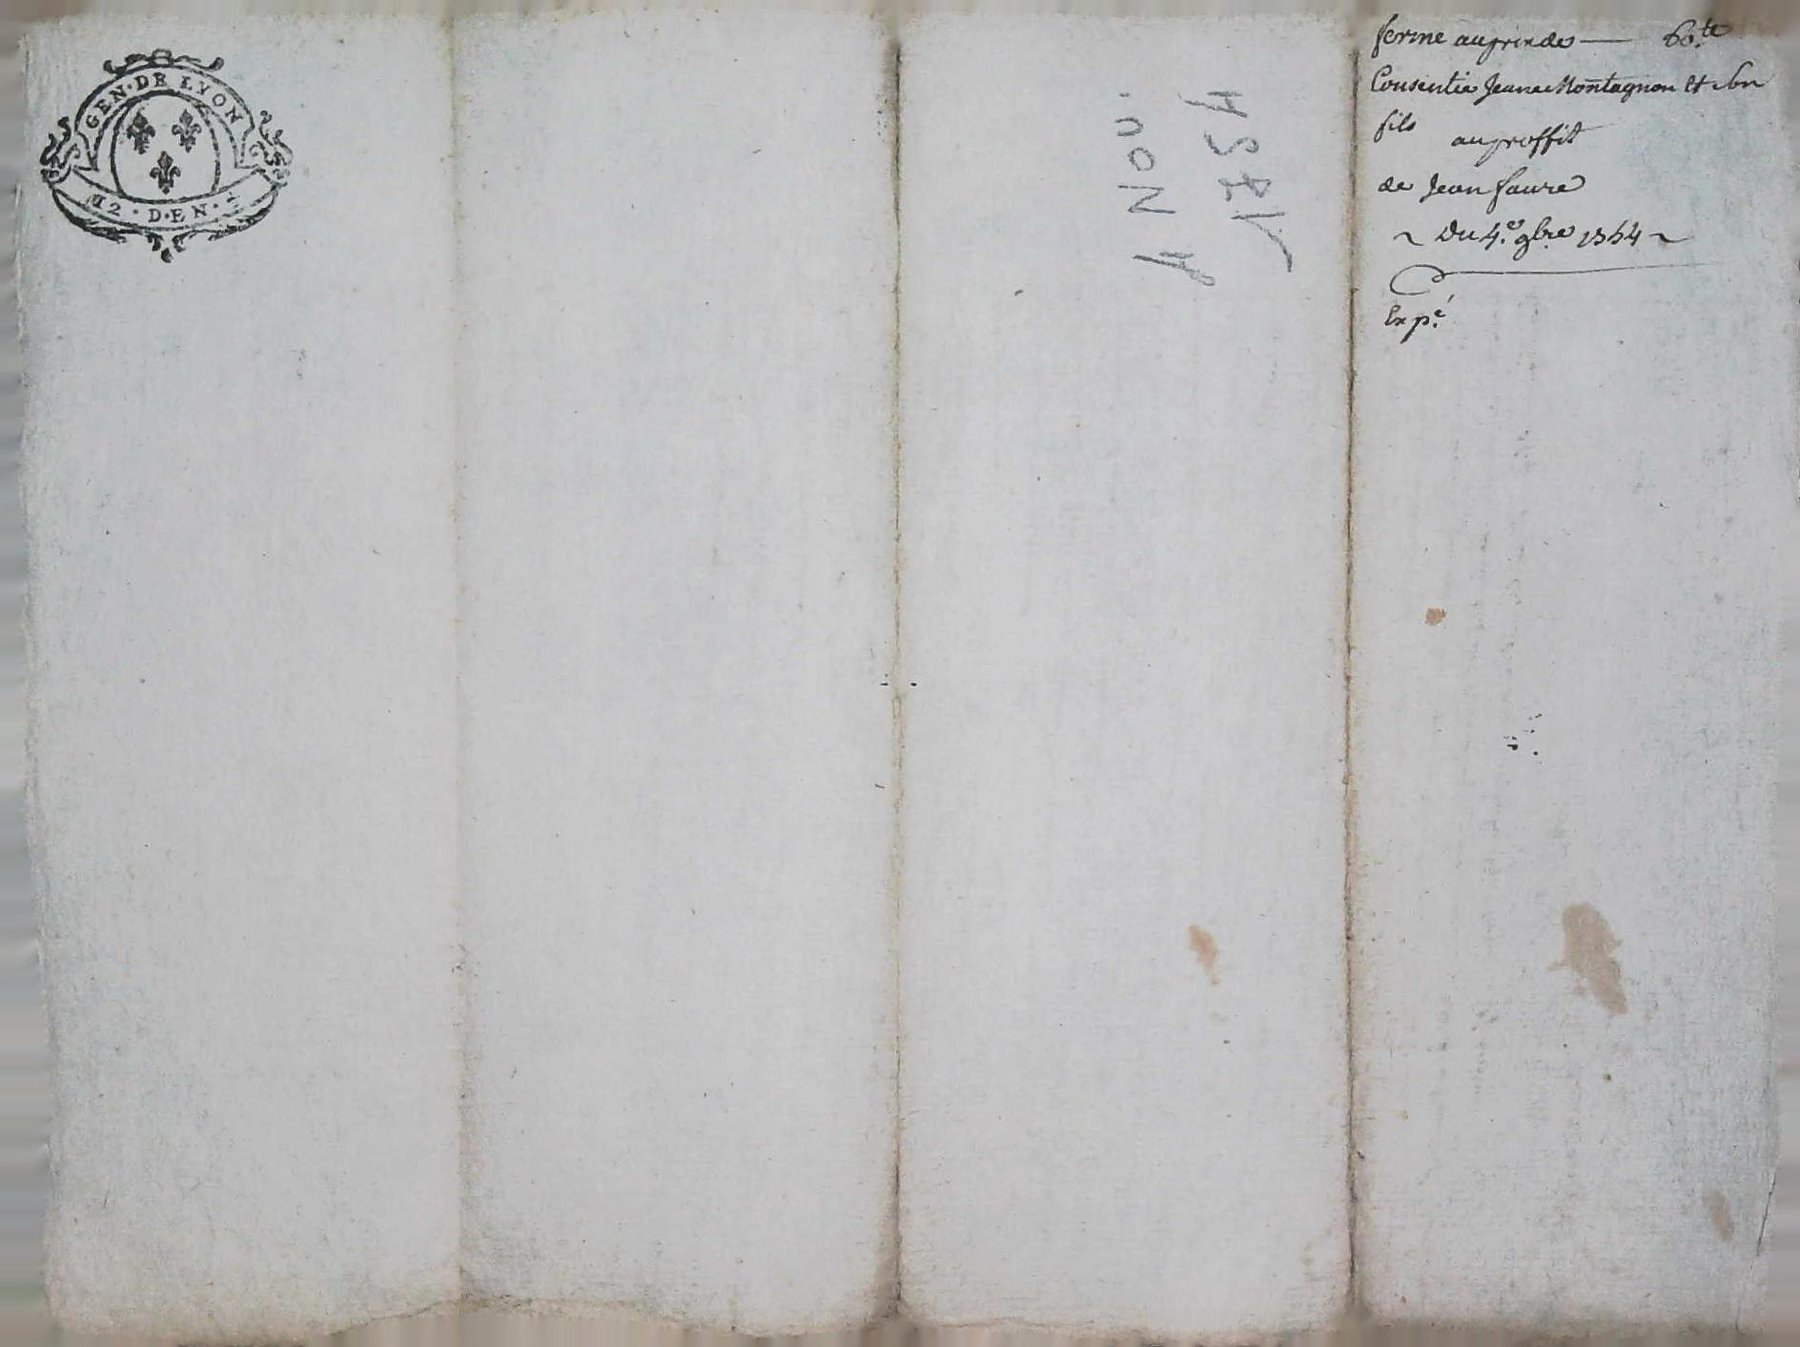 GEN·DE LYON
12·D·EN·
4 Nov.
1754
ferme au prix de — 60.te
Consentie Jeane Montagnon et son
fils
au proffit
de Jean faure
~ Du 4.e 9bre 1754 ~
Exp.é